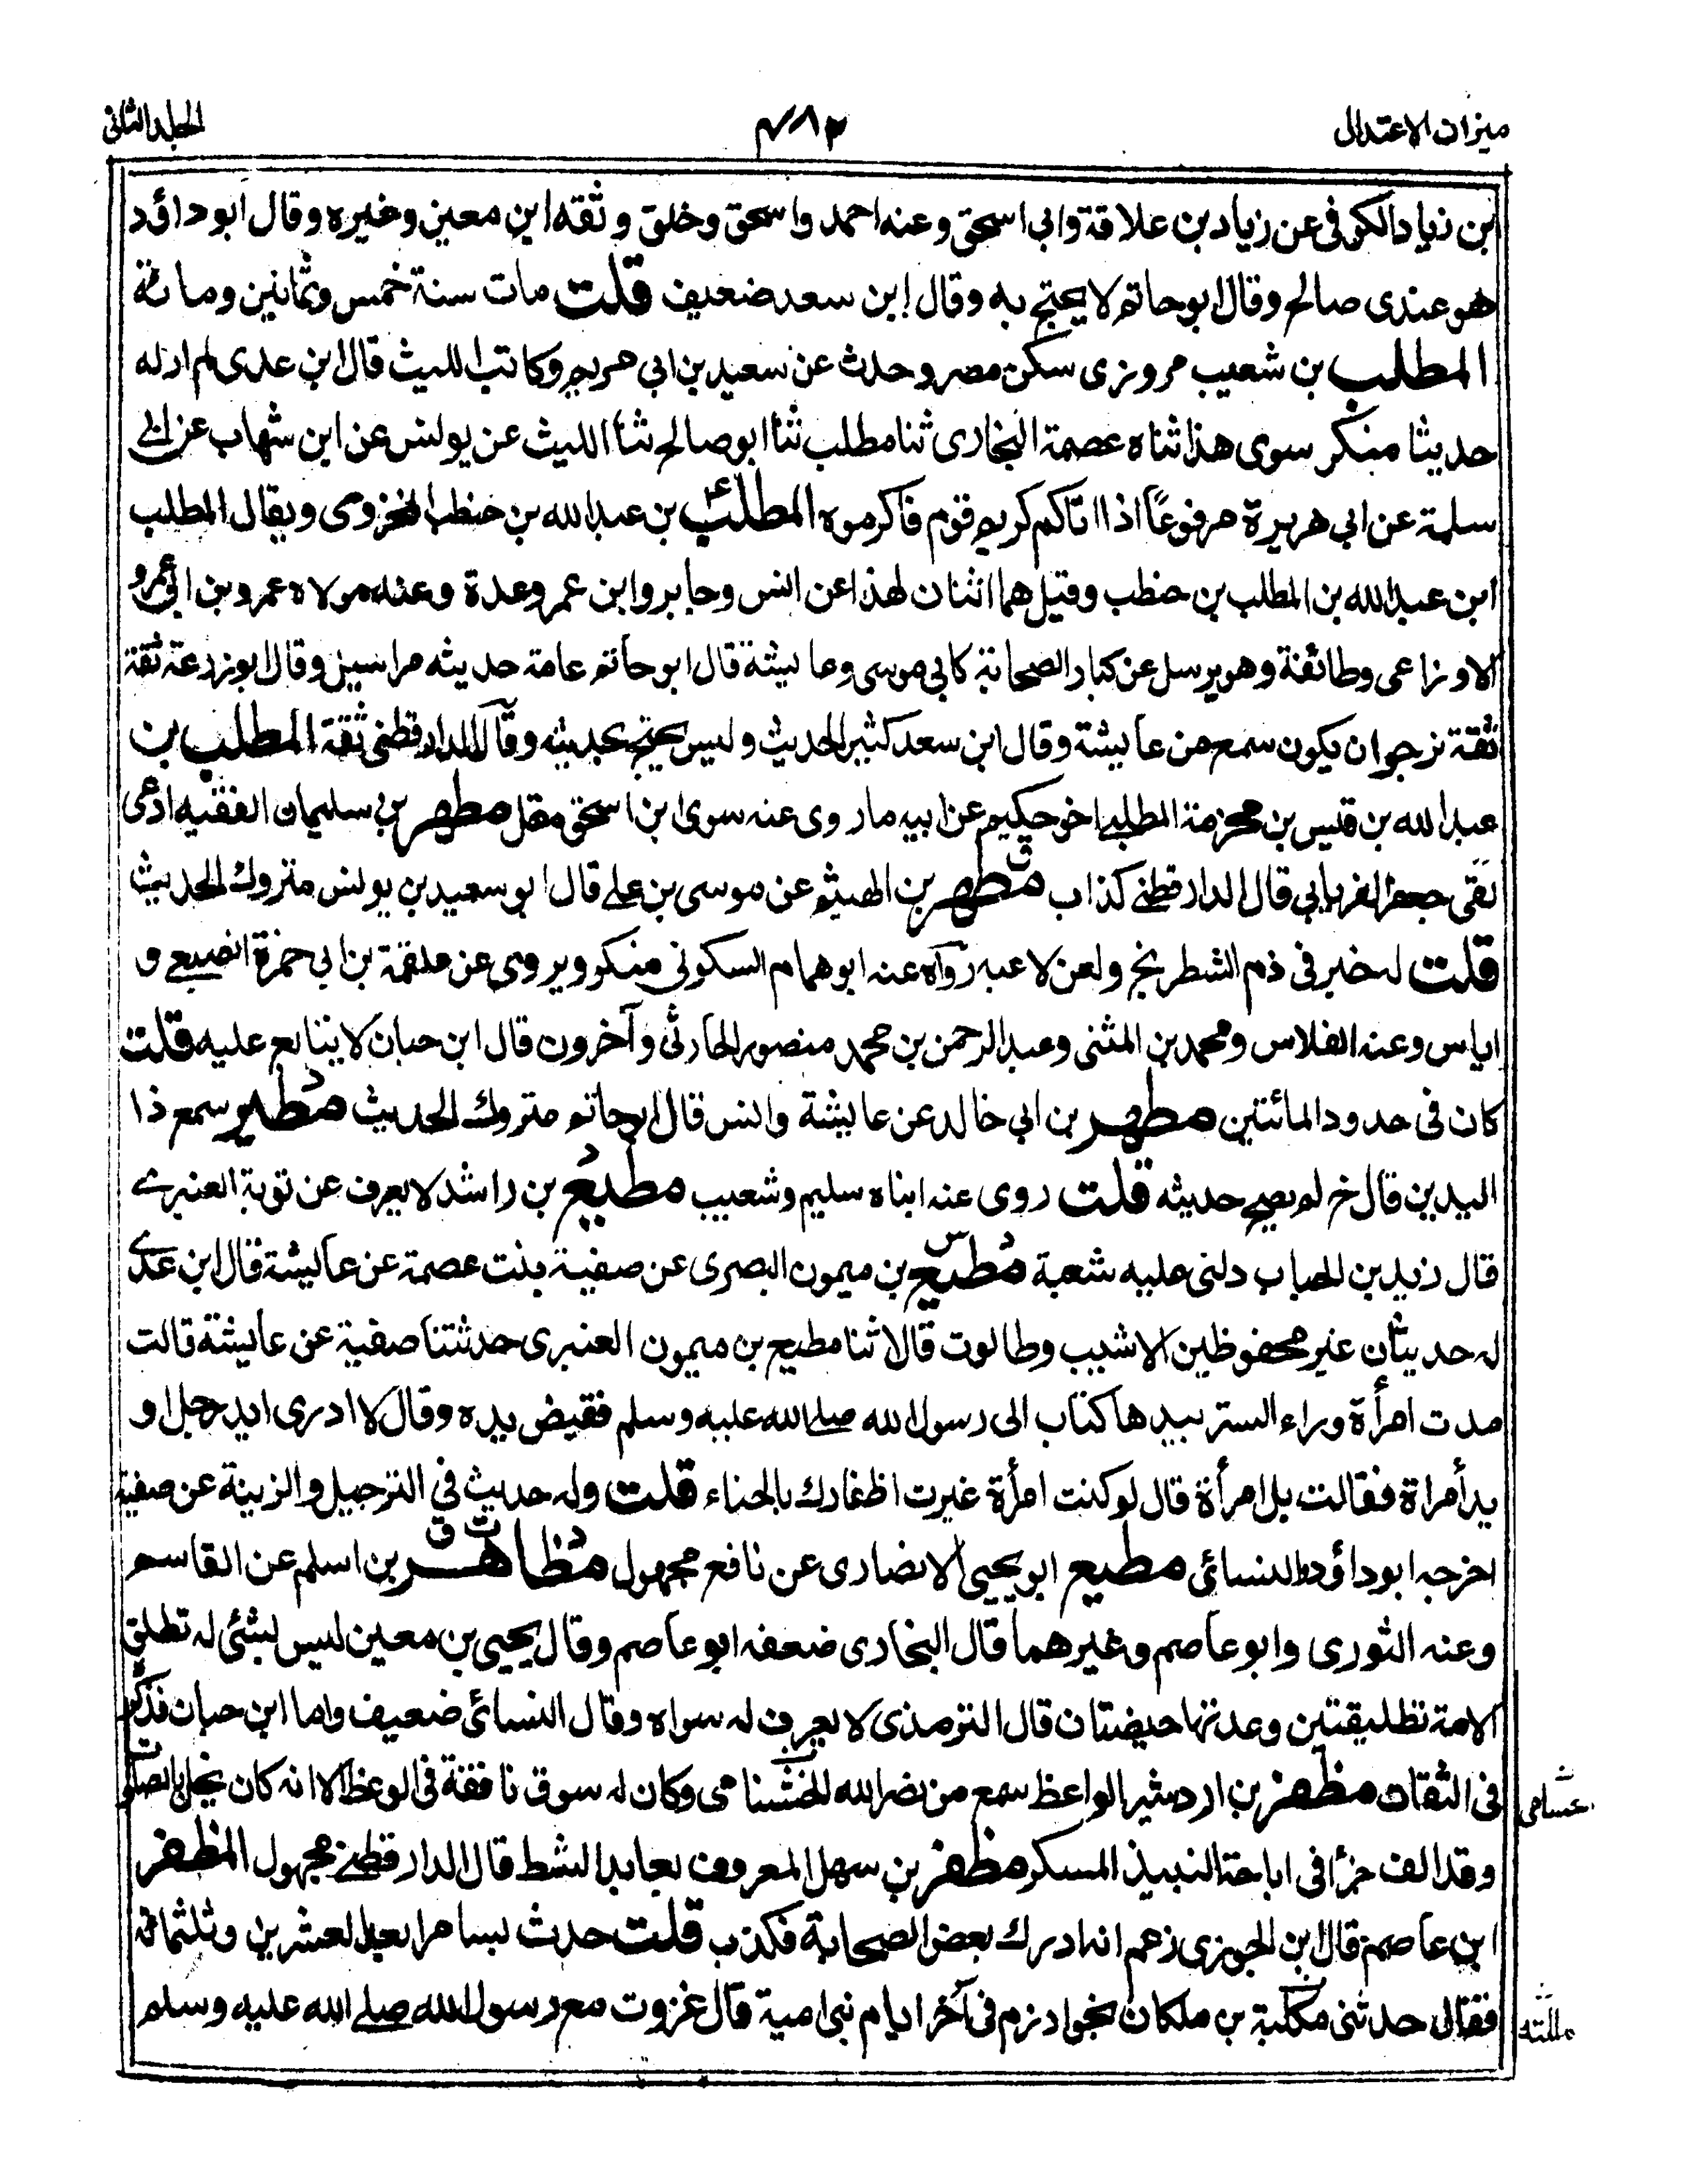 ميزان الاعتدال
٤٨٢
الجلد الثانى
ابن زياد الكوفى عن زياد بن علاقة وابى اسحق وعنه احمد واسحق وخلق وثقه ابن معين وغيره وقال ابو داؤد
هو عندى صالح وقال ابو حاتم لا يحتج به وقال ابن سعد ضعيف قلت مات سنة خمس وثمانين ومائة
المطلب بن شعيب مروزى سكن مصر وحدث عن سعيد بن ابي مريم وكاتب الليث قال ابن عدى لم ار له
حديثا منكر سوى هذا ثناه عصمة البخارى ثنا مطلب ثنا ابو صالح ثنا الليث عن يونس عن ابن شهاب عن ابى
سلمة عن ابي هريرة مرفوعًا اذا اتاكم كريم قوم فاكرموه المطلب بن عبد الله بن حنطب المخزومى ويقال المطلب
ابن عبد الله بن المطلب بن حنطب وقيل هما اثنان لهذا عن انس وجابر وابن عمر وعدة وعنه مولاه عمرو بن ابى عمرو
الاوزاعى وطائفة وهو يرسل عن كبار الصحابة كابي موسى وعايشة قال ابو حاتم عامة حديثه مراسيل وقال ابو زرعة ثقة
ثقة نرجو ان يكون سمع من عايشة وقال ابن سعد كثير الحديث وليس يحتج بحديثه وقال الدارقطنى ثقة المطلب بن
عبد الله بن قيس بن مخرمة المطلبى اخو حكيم عن ابيه ما روى عنه سوى ابن اسحق مقل مطهر بن سليمان الفقيه ادعى
لقى جعفر الفريابي قال الدارقطنى كذاب مطهر بن الهيثم عن موسى بن على قال ابو سعيد بن يونس متروك الحديث
قلت له خبر فى ذم الشطرنج ولعن لاعبه رواه عنه ابو همام السكونى منكر ويروى عن علقمة بن ابي حمزة الضبعى و
اياس وعنه الفلاس ومحمد بن المثنى وعبد الرحمن بن محمد منصور الحارثى وآخرون قال ابن حبان لا يتابع عليه قلت
كان فى حدود المائتين مطهر بن ابي خالد عن عايشة وانس قال ابو حاتم متروك الحديث مطير سمع ذا
اليدين قال خ لم يصح حديثه قلت روى عنه ابناه سليم وشعيب مطيع بن راشد لا يعرف عن توبة العنبرى
قال زيد بن الحباب دلنى عليه شعبة مطيع بن ميمون البصرى عن صفية بنت عصمة عن عايشة قال ابن عدى
له حديثان غير محفوظين الاشيب وطالوت قالا ثنا مطيع بن ميمون العنبرى حدثتنا صفية عن عايشة قالت
مدت امرأة وراء الستر بيدها كتاب الى رسول الله صلى الله عليه وسلم فقبض يده وقال لا ادرى ايد رجل او
يد أمراة فقالت بل امرأة قال لو كنت امرأة غيرت اظفارك بالحناء قلت وله حديث فى الترجيل والزينة عن صفية
اخرجه ابو داؤد والنسائى مطيع ابو يحيى الانصارى عن نافع مجهول مظاهر بن اسلم عن القاسم
وعنه الثورى وابو عاصم وغيرهما قال البخارى ضعفه ابو عاصم وقال يحيى بن معين ليس بشئى له تطلق
الامة تطليقتين وعدتها حيضتان قال الترمذى لا يعرف له سواه وقال النسائى ضعيف واما ابن حبان فذكره
فى الثقات مظفر بن اردشير الواعظ سمع من نصر الله الخشنامى وكان له سوق نافقة فى الوعظ الا انه كان يخل بالصلوات
وقد الف جزءا فى اباحة النبيذ المسكر مظفر بن سهل المعروف بعابد الشط قال الدارقطنى مجهول المظفر
ابن عاصم قال ابن الجوزى زعم انه ادرك بعض الصحابة فكذب قلت حدث بسامرا بعد العشرين وثلثمائة
فقال حدثنى مكلبة بن ملكان بخوارزم فى آخر ايام بنى امية قال غزوت مع رسول الله صلى الله عليه وسلم